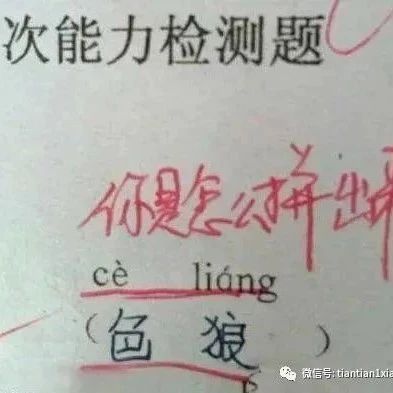 次能力检测题
你是怎么拼出来
cè liáng
（色 狼 ）
微信号: tiantian1xia